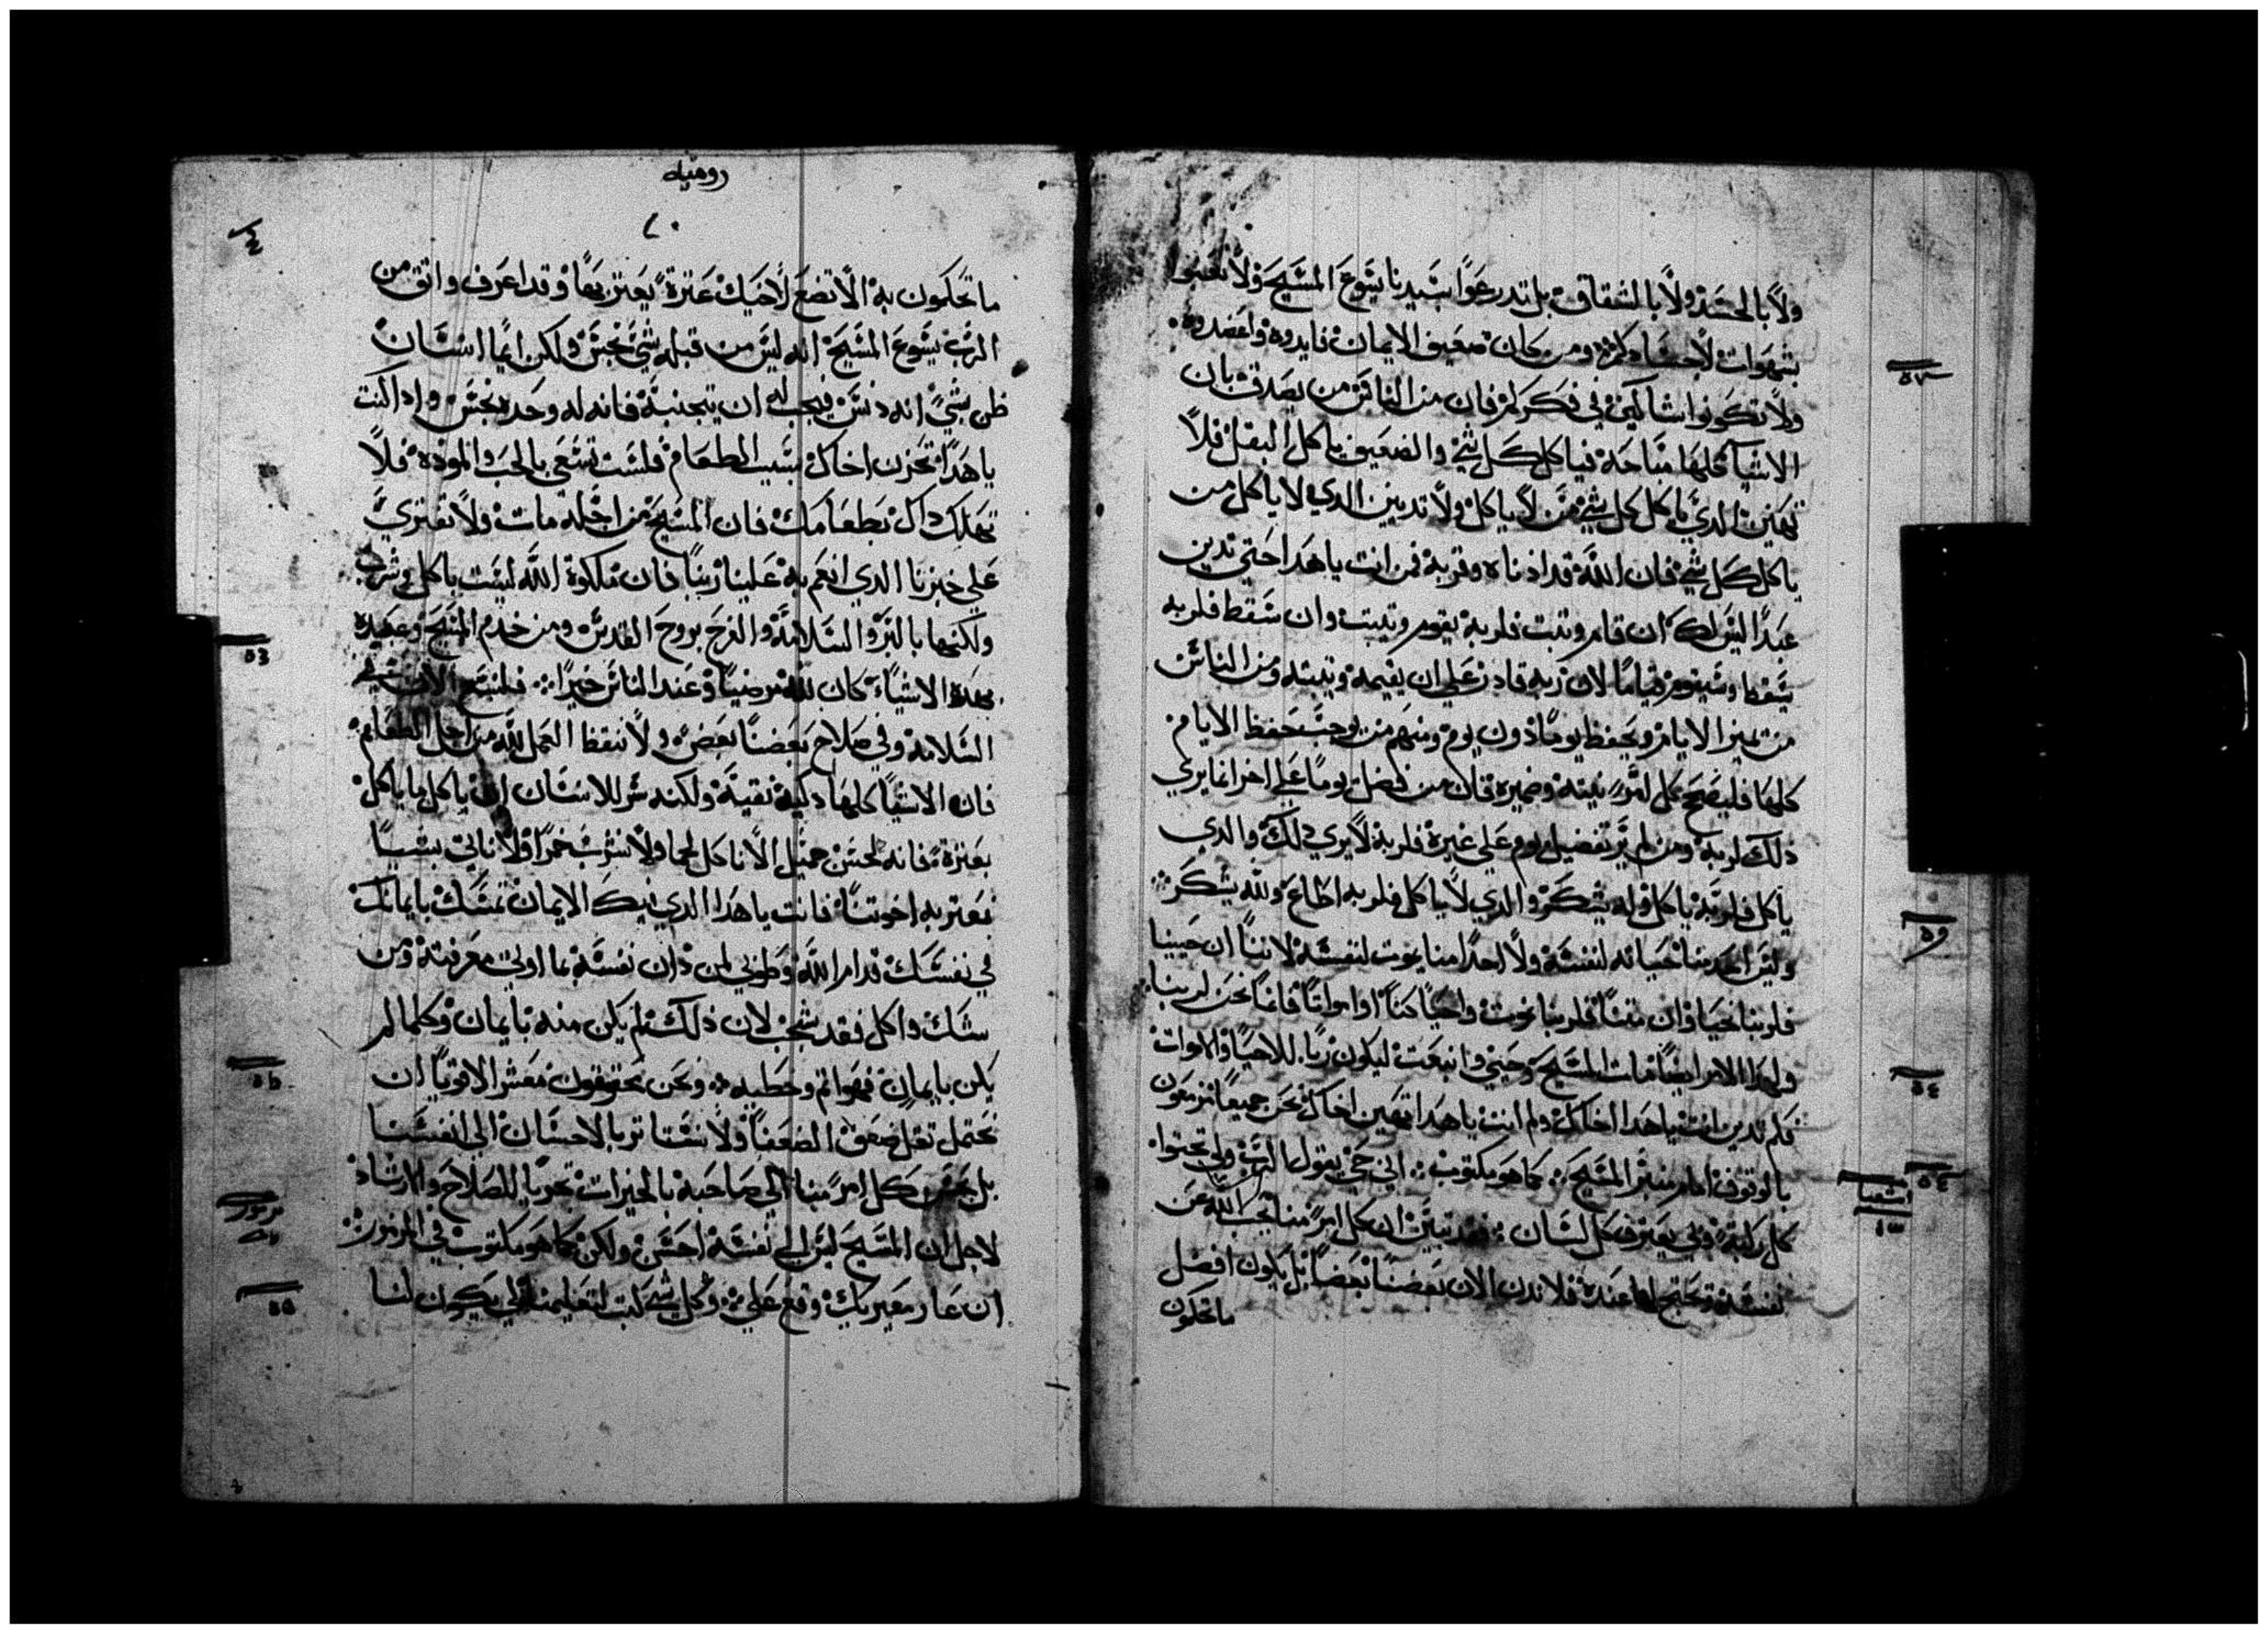 ولا بالحسد ولا بالشقاق بل تدرعوا بسيدنا يسوع المسيح ولا تعنوا
بشهوات لاجسادكم ومن كان ضعيف الايمان فايدوه واعضدوه
ولا تكونوا شاكين في فكركم فان من الناس من يصدق بان
الاشيا كلها مباحه فياكل كل شي والضعيف ياكل البقل فلا
يهين الدي ياكل كل شي من لا ياكل ولا تدينن الدي لا ياكل من
ياكل كل شي فان الله قد ادناه وقربه فمن انت ياهدا حتي تدين
عبدا ليس لك ان قام وتبت فلربه يقوم ويتبت وان سقط فلربه
يسقط وسيقوم قياما لان ربه قادر علي ان يقيمه ويتبته ومن الناس
من يميز الايام ويحفظ يوما دون يوم ومنهم من يوجب حفظ الايام
كلها فليصح كل امرء نيته وضميره فان من فضل يوما علي اخر انما يري
ذلك لربه ومن لم ير تفضيل يوم علي غيره فلربه لا يري ذلك والدي
ياكل فلربه ياكل وله يشكر والدي لا ياكل فلربه اطاع ولله يشكر
وليس احد منا حياته لنفسه ولا احدا منا يموت لنفسه لاننا ان حيينا
فلربنا نحيا وان متنا فلربنا نموت واحيا كنا او امواتا فانما نحن لربنا
ولهدا الامر ايضا مات المسيح وحيي وانبعت ليكون ربا للاحيا والاموات
فلم تدين انت ياهدا اخاك ولم انت ياهدا تهين اخاك نحن جميعا مزمعون
بالوقوف امام منبر المسيح كما هو مكتوب اني حي يقول الرب ولي تحتوا
كل ركبه ولي يعترف كل لسان فقد تبين ان كل امرء منا يجيب الله عن
نفسه ويحتج لها عنده فلا ندن الان بعضنا بعضا بل يكون افضل
ماتحكون
٥٣
٥٤
٥٤
اشعيا
روميه
٢٠
ما تحكمون به الا تضع لاخيك عترة يعتر بها وقد اعرف واتق من
الرب يسوع المسيح انه ليس من قبله شي نجس ولكن ايما انسان
ظن بشي انه دنس فيجب له ان يتجنبه فانه له وحده نجس واد اكنت
ياهدا تحزن اخاك بسبب الطعام فلست تسعي بالحب والموده فلا
تهلك داك بطعامك فان المسيح من اجله مات ولا نفتري
علي خبزنا الدي انعم به علينا ربنا فان ملكوة الله ليست باكل وشرب
ولكنها بالبر والسلامة والفرح بروح القدس ومن خدم المسيح وعبده
بهده الاشياء كان لله مرضيا وعند الناس خيرا فلنتبع الان
السلامه وفي صلاح بعضنا بعض ولا ننقظ العمل لله من اجل الطعام
فان الاشيا كلها دكيه نقيه ولكنه شر للانسان ان ياكل ما ياكل
بعترة فانه لحسن جميل الا ناكل لحما ولا نشرب خمرا ولا ناتي بشيا
نعتر به اخوتنا فانت ياهدا الدي فيك الايمان تمسك بايمانك
في نفسك قدام الله وطوبي لمن دان نفسه بما اوتي معرفته ومن
شك واكل فقد شجب لان ذلك لم يكن منه بايمان وكلما لم
يكن بايمان فهو اتم وخطيه ونحن محقوقون معشر الاقويا ان
نحتمل تقل ضعف الضعفا ولا نستاتر بالاحسان الي انفسنا
بل يحسن كل امرء منا الي صاحبه بالخيرات تحريا للصلاح والارشاد
لاجل ان المسيح ليس الي نفسه احسن ولكن كما هو مكتوب في المزمور
ان عار معيريك وقع علي وكل شي كتب لتعليمنا لكي يكون لنا
مزمور